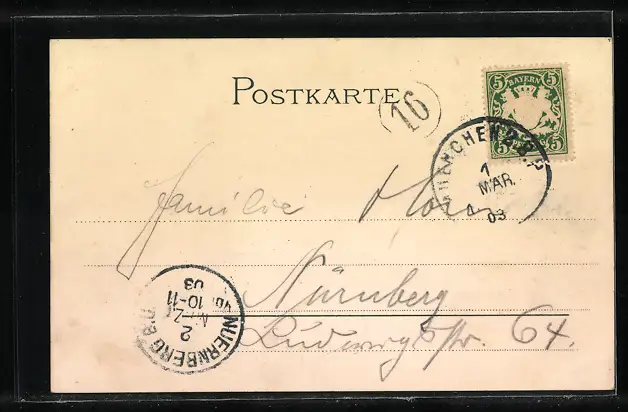 POSTKARTE
16
5 BAYERN 5
5 5
MUENCHEN 2 B.P.
1
MÄR.
03
Familie
Nürnberg
Ludwigstr. 64.
NUERNBERG
2
MRZ
10-11
03